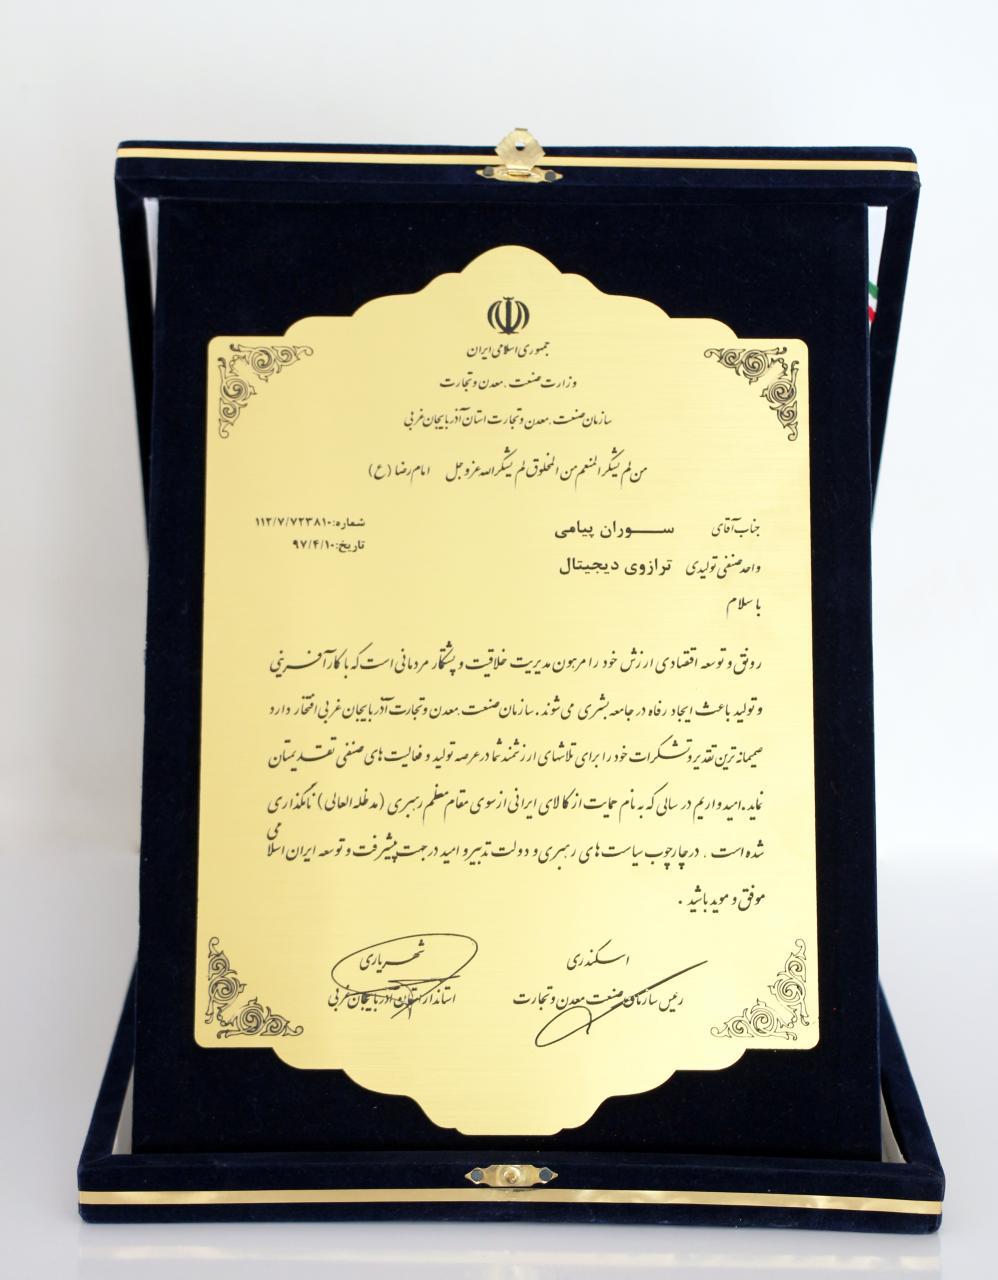 جمهوری اسلامی ایران
وزارت صنعت، معدن و تجارت
سازمان صنعت، معدن و تجارت استان آذربایجان غربی
من لم یشکر المنعم من المخلوق لم یشکر الله عزوجل امام رضا (ع)
جناب آقای سوران پیامی
شماره: ۱۱۲/۷/۷۲۳۸۱۰
تاریخ: ۹۷/۴/۱۰
واحد صنفی تولیدی ترازوی دیجیتال
با سلام
رونق و توسعه اقتصادی ارزش خود را مرهون مدیریت خلاقیت و پشتکار مردمانی است که با کارآفرینی
و تولید باعث ایجاد رفاه در جامعه بشری می شوند. سازمان صنعت، معدن و تجارت آذربایجان غربی افتخار دارد
صمیمانه ترین تقدیر و تشکرات خود را برای تلاشهای ارزشمند شما در عرصه تولید و فعالیت های صنفی تقدیمتان
نماید. امیدواریم در سالی که به نام حمایت از کالای ایرانی از سوی مقام معظم رهبری (مدظله العالی) نامگذاری
شده است، در چارچوب سیاست های رهبری و دولت تدبیر و امید در جهت پیشرفت و توسعه ایران اسلامی
موفق و موید باشید.
اسکندری
رئیس سازمان صنعت معدن و تجارت
شهریاری
استاندار استان آذربایجان غربی